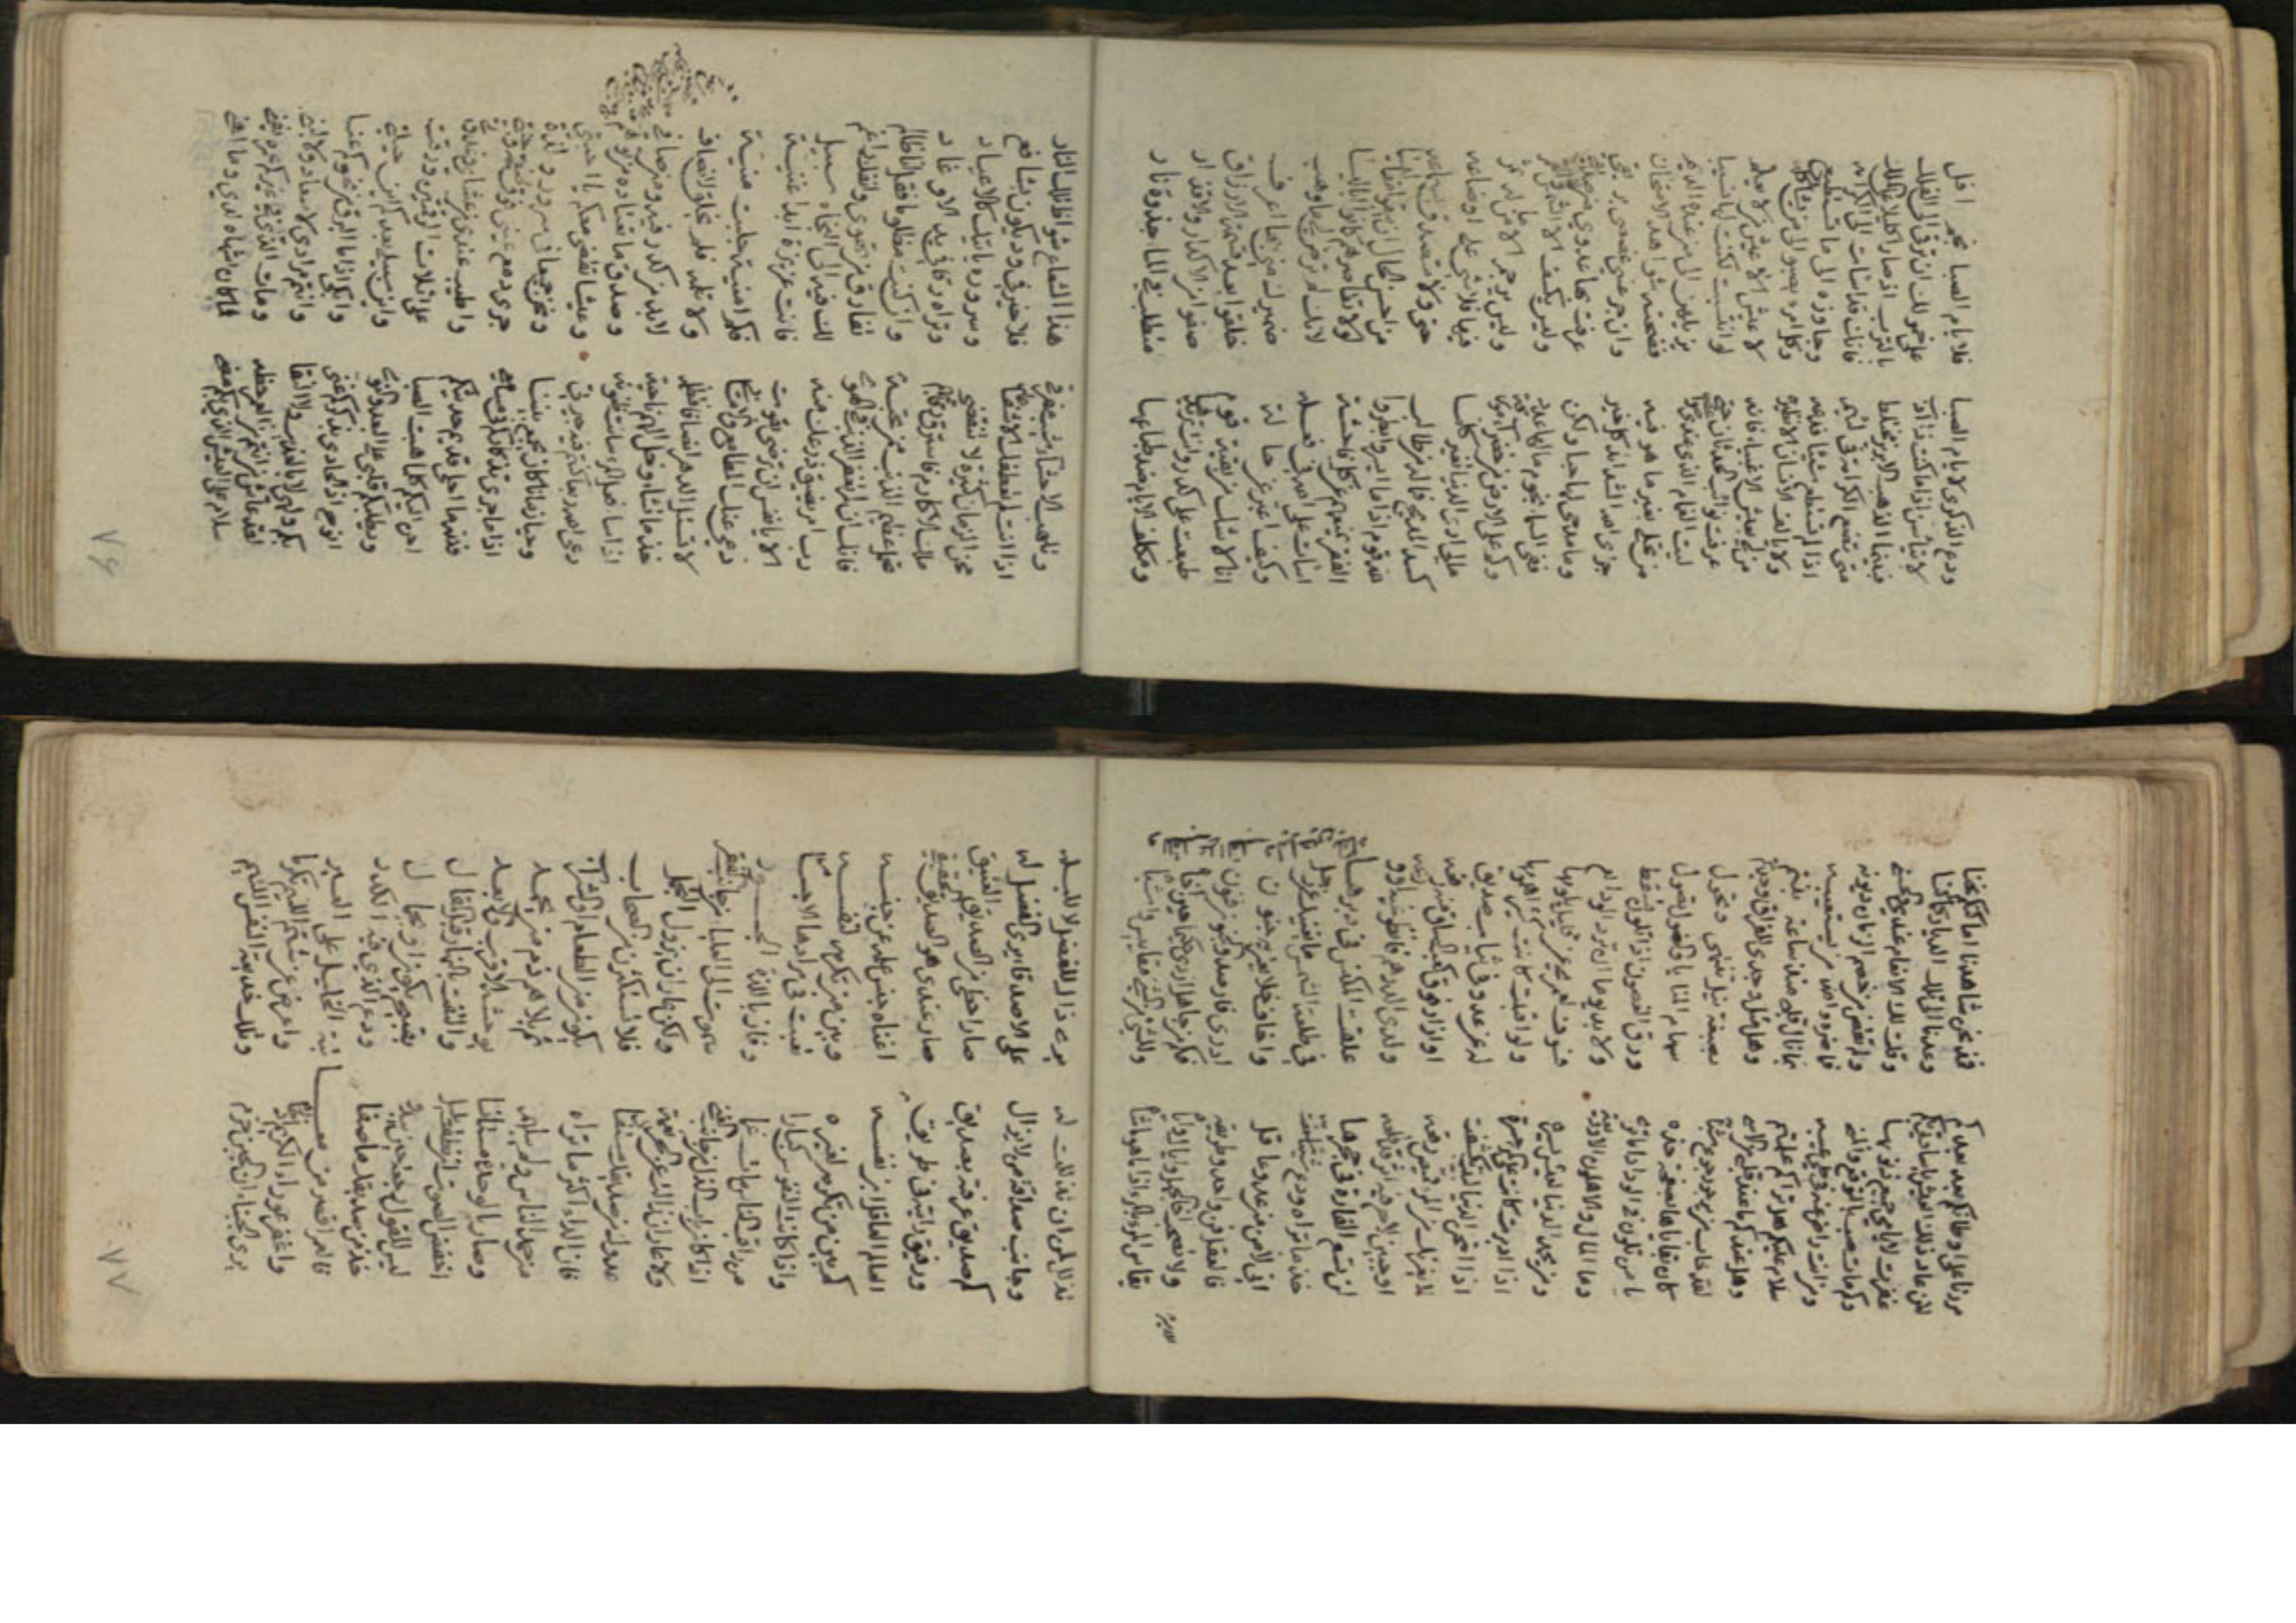 ودع الذكرى لايام الصبا فلايام الصبا نجم افل
لا تيأسن اذا ما كنت ذا ادب على خمولك ان ترقى الى الفلك
فبينما الذهب الابريز مختلط بالترب اذ صار اكليلا على الملك
متى تضع الكرامة في لئيم فانك قد اسات الى الكرامه
اذا لم تستطع شيئا فدعه وجاوزه الى ما تستطيع
ولا يالف الانسان الا نظيره وكل امرء يصبو الى من يشاكله
لا عيش الا
عرفت نوائب الحدثان حتى لو انتسبت لكنت لها نسيبا
ليت الغمام الذي عندي صواعقه يزيلهن الى من عنده الديم
من تحلى بغير ما هو فيه فضحته شواهد الامتحان
جزى الله الشدائد كل خير وان جرعتني غصصي بريقي
وما مدحي لها حبا ولكن عرفت بها عدوي من صديقي
ففي السما نجوم ما لها عدد وليس يكسف الا الشمس والقمر
وكم على الارض من خضراء مورقة وليس يرجم الا من له ثمر
مالي ارى الدنيا تغير كلما فيها فلا شي على اوضاعه
كسد المديح فما له من طالب حتى ولا متصدق بسماعه
لله قوم اذا ما من احسن الحال
اسات على الله في فعله لانك لم ترض لي ما وهب
وكيف اعبر عن حالة ضميرك مني بها اعرف
انا لا اشك خلقوا بعد قسمة الارزاق
طبعت على كدر وانت تريدها صفوا من الاكدار والاقذار
ومكلف الايام ضد طباعها متطلب في الماء جذوة نار
وتلهب الاحشاء شيب مفرقي هذا الشعاع شواظ تلك النار
اذا انت لم فلا خير في ود يكون بشافع
محن الزمان كثيرة لا تنقضي وسروره ياتيك كالاعياد
ملك الاكارم فاسترق رقابهم وتراه رقا في يد الاوغاد
تحمل عظيم الذنب ممن تحبه وان كنت مظلوما فقل انا ظالم
فانك ان لم تغفر الذنب في الهوى تفارق من تهوى وانفك راغم
رب امر يضيق ذرعك منه لك فيه الى النجاة سبيل
الا يا نفس ان ترضي بقوت فانت عزيزة ابدا غنية
دعي عنك المطامع والاماني فكم امنية جلبت منية
لا تسئل الدهر انصافا فتظلمه ولا تلمه فلم يخلق لانصاف
خذ ما تشا وخل الهم ناحية لا بد من كدر فيه ومن صافي
اذا ساء فعل المرء ساءت ظنونه وصدق ما يعتاده من توهم
رعى الله دهرا كنتم فيه جيرتي وعيشا تقضى معكم يا احبتي
وحيا زمانا كان يجمع بيننا ونحن جميعا في سرور ولذة
اذا ما جرى تذكاركم في مسامعي جرى دمع عيني فوق
فلله ما احلى قديم حديثكم واطيب عندي
احن اليكم كلما هبت الصبا على اثلات
ويطلبكم قلبي على البعد والنوى واين سبيل بعدكم اين حيلتي
اذ الحادي بذكركم غنى وابكي اذا ما البرق من نحوكم عنا
بكم ولهي لا بالعذيب ولا النقا وانتم مرادي لا سعاد ولا لبنى
لقد عاش من انتم من العمر حظه ومات الذي في غيركم عمره يفنى
سلام على العيش الذي بكم مضى فما كان اشهاه لدي وما اهنى
٧٦
مررنا على اوطانكم بعد بعدكم نحن شاهدنا
لئن عاد ذلك العيش يا سادتي بكم وعدنا الى تلك الديار كما كنا
غفرت لايامي جميع ذنوبها وقلت لك الانعام عندي والحسنى
وكم مات صب بالتوقع والمنى ولم تقض من خصم الزمان ديونه
ومن انت راض عنه في طي غيبه فما ضره والله من يستغيبه
سلام عليكم هل ترى كم علمتم بما نال قلبي منذ ساعة بنتم
وهل عندكم ما عند قلبي من الاسى وهل مثل وجدي للفراق وجدتم
لقد خاب من يرجو رجوع شبيبة بصبغة وتحول
كان بقاياها بصفحة خده سهام المنايا والنصول نصول
يا من تلون في الوداد اما ترى ورق الغصون اذا تلون يسقط
وما المال والاهلون الا وديعة ولا بد يوما ان ترد الودائع
ومن يحمد الدنيا لعيش يسره فسوف لعمري عن قليل يلومها
اذا ادبرت كانت على المرء حسرة ولو اقبلت كانت كثيرا همومها
اذا امتحن الدنيا لبيب تكشفت له عن عدو في ثياب صديق
لا يغرنك من المرء قميص رقعه او ازار فوق كعب الساق منه رفعه
او جبين لاح فيه اثر قد خلعه ولدى الدرهم فانظر غيه او ورعه
لن تسع الفارة في جحرها علقت المكنس في دبرها
خذ ما تراه ودع شيئا سمعت به في طلعة الشمس ما يغنيك عن زحل
اني لامن من عدو عاقل واخاف خلا يعتريه جنون
فالعقل فن واحد وطريقه ادري فارصد والجنون فنون
ولا تصحب اخا الجهل واياك واياه فكم من جاهل اردى حليما حين آخاه
يقاس المرء بالمرء اذا ما هو ماشاه وللشي من الشي مقاييس واشباه
تذلل لمن ان تذللت له يرى ذاك للفضل لا للبله
وجانب صداقة من لا يزال على الاصدقا يرى الفضل له
كم صديق عرفته بصديق صار احظى من الصديق العتيق
ورفيق رايته في طريق صار عندي هو الصديق الحقيقي
العالم العاقل ابن نفسه اغناه جنس علمه عن جنسه
كم بين من تكرمه لغيره وبين من تكرمه لنفسه
واذا كانت النفوس كبارا تعبت في مرادها الاجسام
من راقب الناس مات غما وفاز باللذة الجسور
اذا كان باب الذل من جانب الغنى سموت الى العليا من جانب الفقر
ولا عار ان زالت عن الحر نعمة ولكن عارا ان يزول التجمل
عدوك من صديقك مستفاد فلا تستكثرن من الصحاب
فان الداء اكثر ما تراه يكون من الطعام او الشراب
من حمد الناس ولم يبلهم ثم بلاهم ذم من يحمد
وصار بالوحدة مستانسا يوحشه الاقرب والابعد
اخفض الصوت ان نطقت بليل والتفت بالنهار قبل المقال
ليس للقول رجعة حين يبدو بقبيح يكون او بجمال
خذ من صديقك ما صفا ودع الذي فيه الكدر
فالعمر اقصر من معاتبة الخليل على الغير
واغفر عوراء الكريم واعرض عن شتم اللئيم تكرما
يرى الجبناء ان الجبن حزم وتلك خديعة النفس اللئيم
٧٧